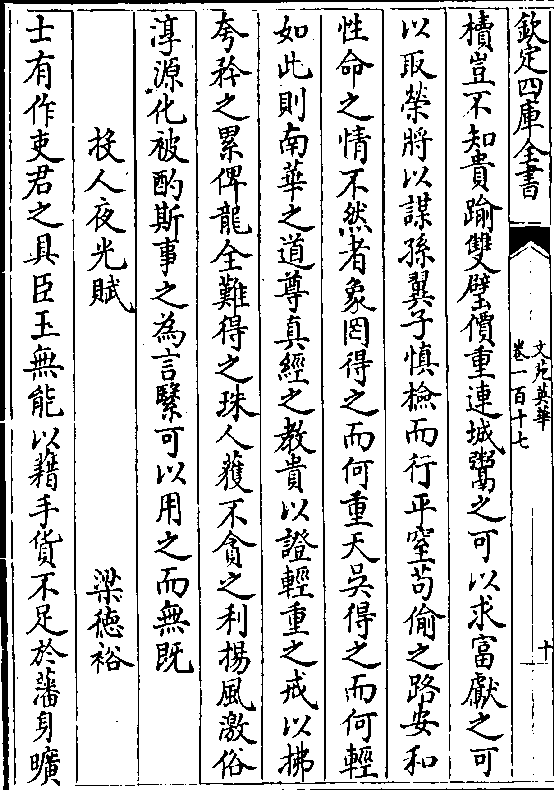 欽定四庫全書
文苑英華
卷一百十七
十
櫝豈不知貴踰雙璧價重連城鬻之可以求富獻之可
以取榮將以謀孫翼子慎檢而行平窒苟偷之路安和
性命之情不然者象罔得之而何重天吳得之而何輕
如此則南華之道尊真經之教貴以證輕重之戒以拂
夸矜之累俾龍全難得之珠人蕿不貪之利揚風激俗
淳源化被酌斯事之為言繄可以用之而無既
投人夜光賦
梁德裕
士有作吏君之具臣玉無能以藉手貨不足於藩身曠